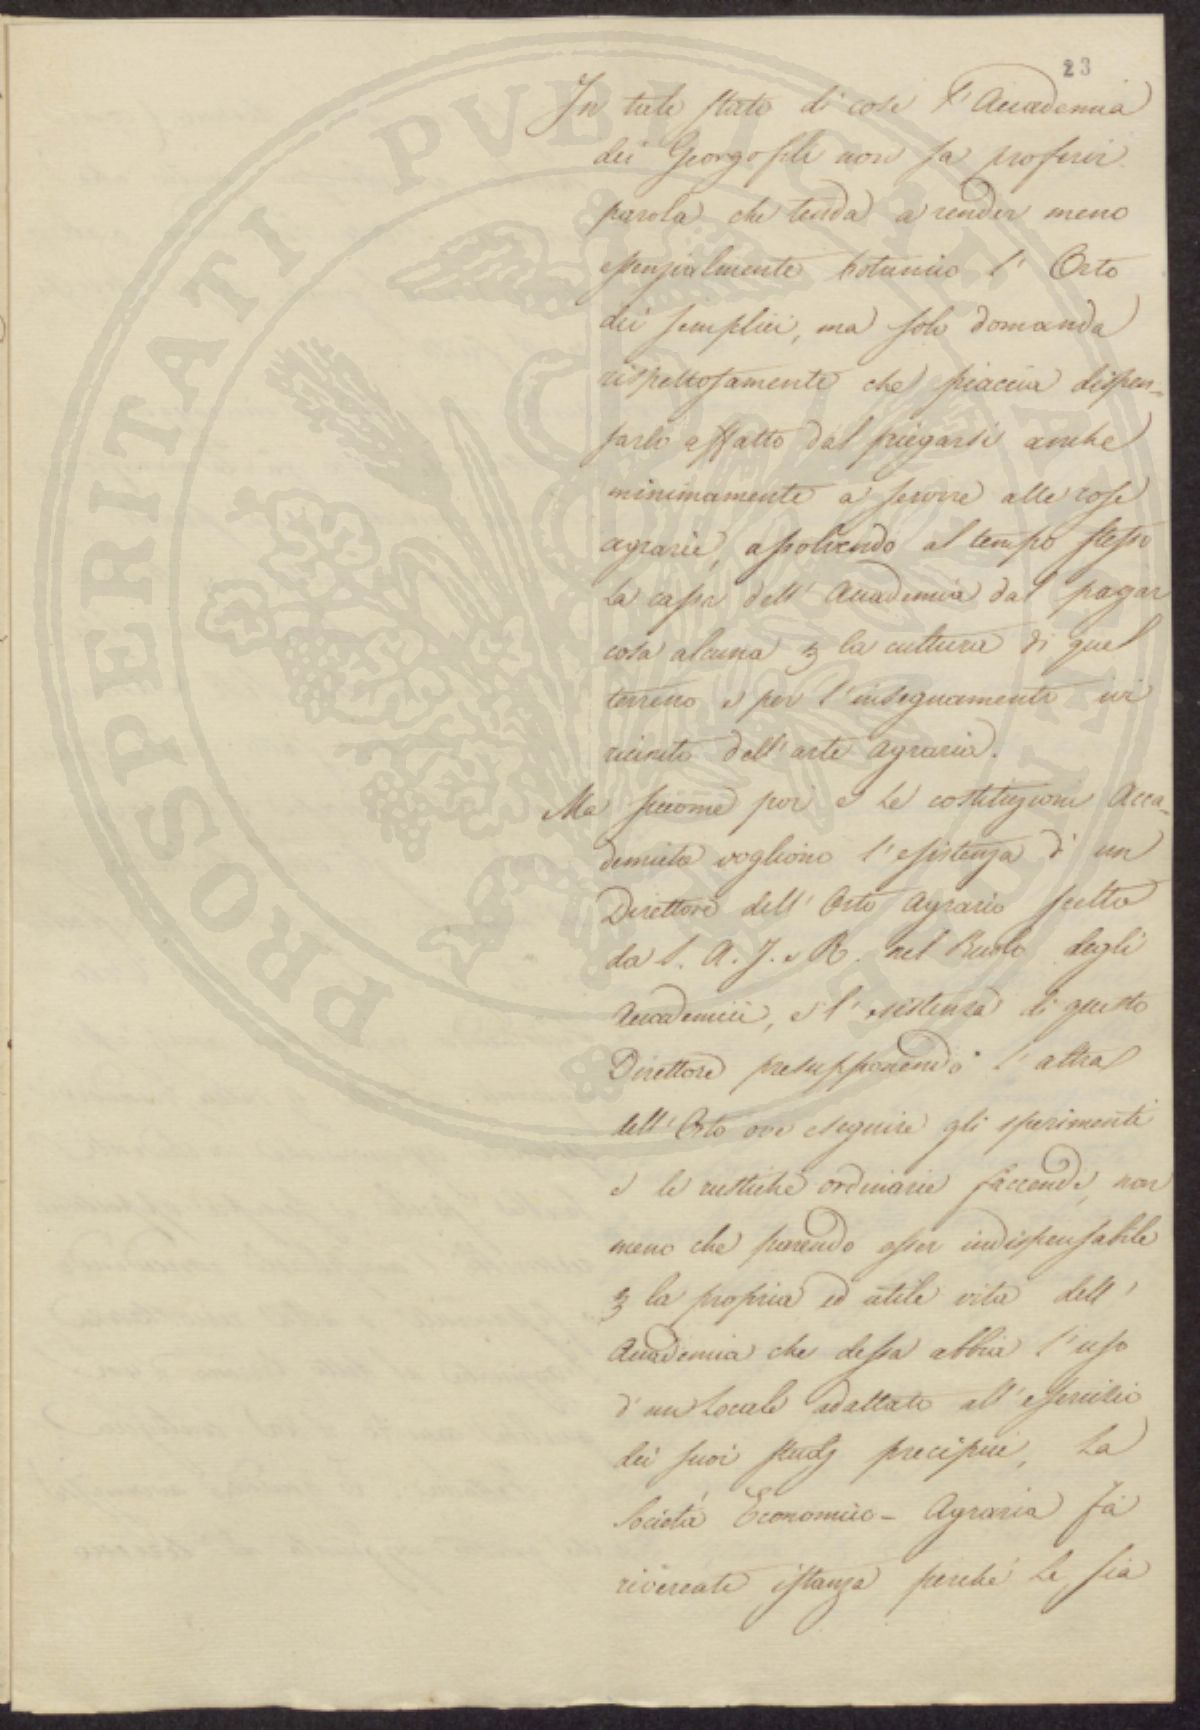 23
In tale stato di cose l'Accademia
dei Georgofili non sa proferir
parola che tenda a render meno
essenzialmente botanico l'Orto
dei semplici, ma solo domanda
rispettosamente che piaccia dispen-
sarlo affatto dal piegarsi anche
minimamente a servire alle cose
agrarie, assolvendo al tempo stesso
la cassa dell'Accademia dal pagar
cosa alcuna p la cultura di quel
terreno e per l'insegnamento ivi
ricevuto dell'arte agraria.
Ma siccome poi e le costituzioni Acca-
demiche vogliono l'esistenza d'un
Direttore dell'Orto Agrario scelto
da S. A. I. e R. nel Ruolo degli
Accademici, e l'esistenza di questo
Direttore presupponendo l'altra
dell'Orto ove eseguire gli sperimenti
e le rustiche ordinarie faccende, non
meno che parendo esser indispensabile
p la propria ed utile vita dell'
Accademia che dessa abbia l'uso
d'un Locale adattato all'esercizio
dei suoi studj precipui, La
Società Economico-Agraria fa
riverente istanza perché le sia
PROSPERITATI PVBLICAE AVGENDAE